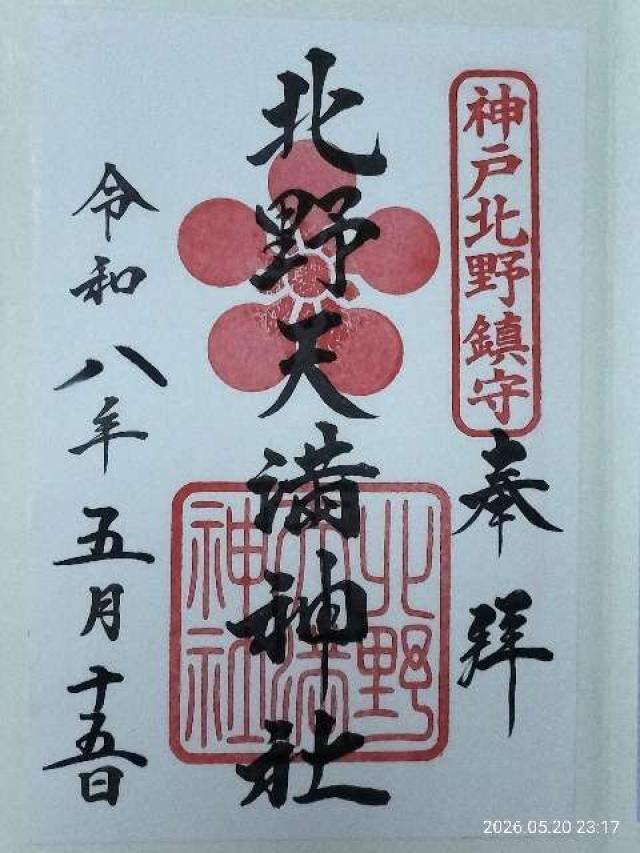 神戸北野鎮守
奉拝
北野天満神社
北野
天満
神社
令和八年五月十五日
2026.05.20 23:17